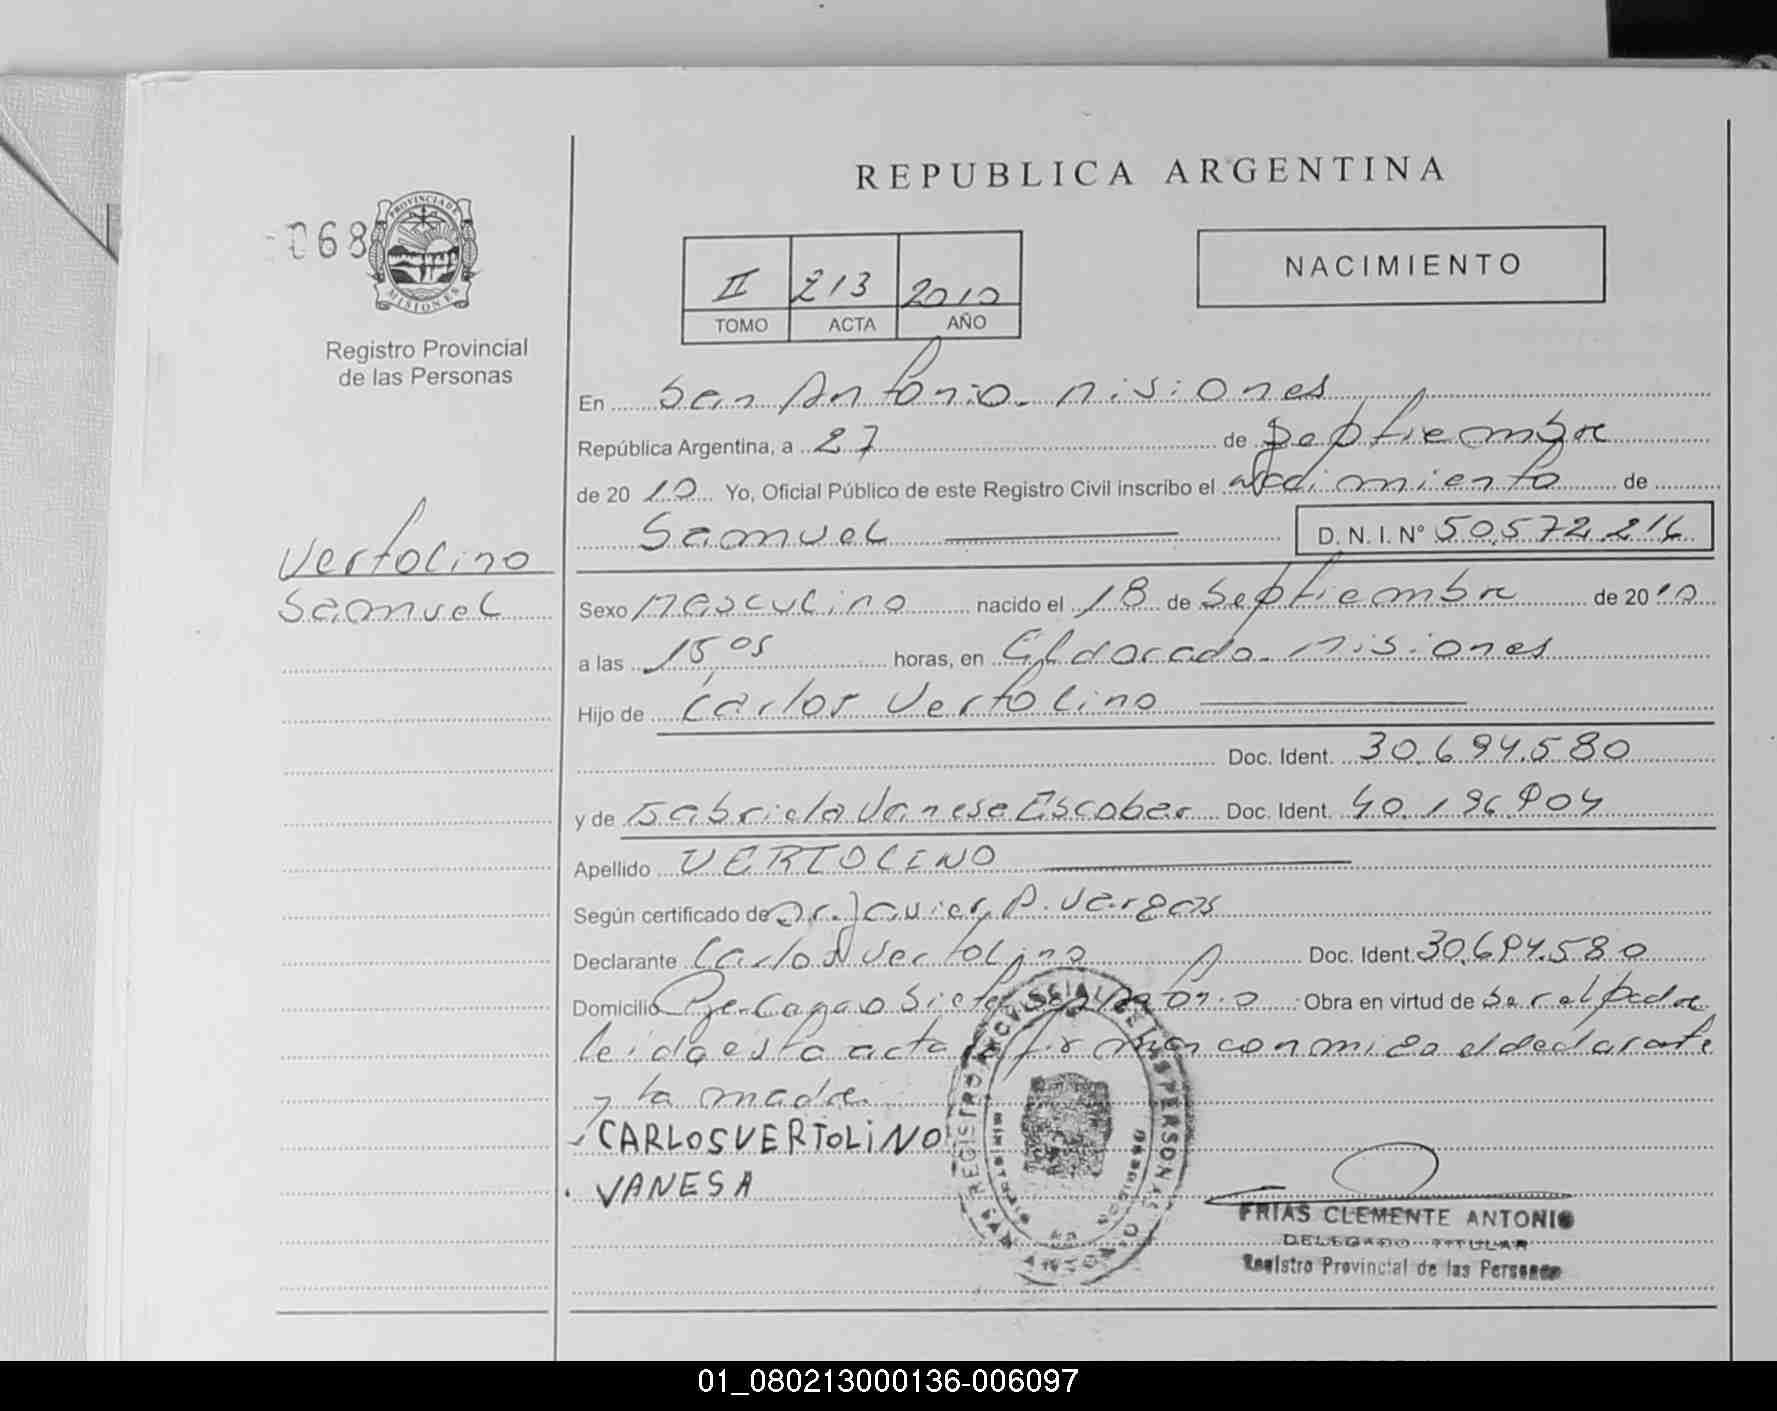 REPUBLICA ARGENTINA
068
PROVINCIA DE
MISIONES
Registro Provincial
de las Personas
II 213 2010
TOMO ACTA AÑO
NACIMIENTO
En San Antonio - Misiones
República Argentina, a 27 de Septiembre
de 2010 Yo, Oficial Público de este Registro Civil inscribo el de
Samuel D. N. I. Nº 50.572.216
Vertolino
Samuel
Sexo Masculino nacido el 18 de Septiembre de 2010
a las 15,05 horas, en Eldorado - Misiones
Hijo de Carlos Vertolino
Doc. Ident. 30.694.580
y de Gabriela Vanesa Escobar Doc. Ident. 40.196.904
Apellido VERTOLINO
Según certificado de Dr. Javier A. Vargas
Declarante Carlos Vertolino Doc. Ident. 30.694.580
Domicilio Obra en virtud de Ser el Padre
leida esta acta la firman conmigo el declarante
y la madre.
CARLOS VERTOLiNO
VANESA
FRIAS CLEMENTE ANTONIO
DELEGADO TITULAR
Registro Provincial de las Personas
01_080213000136-006097